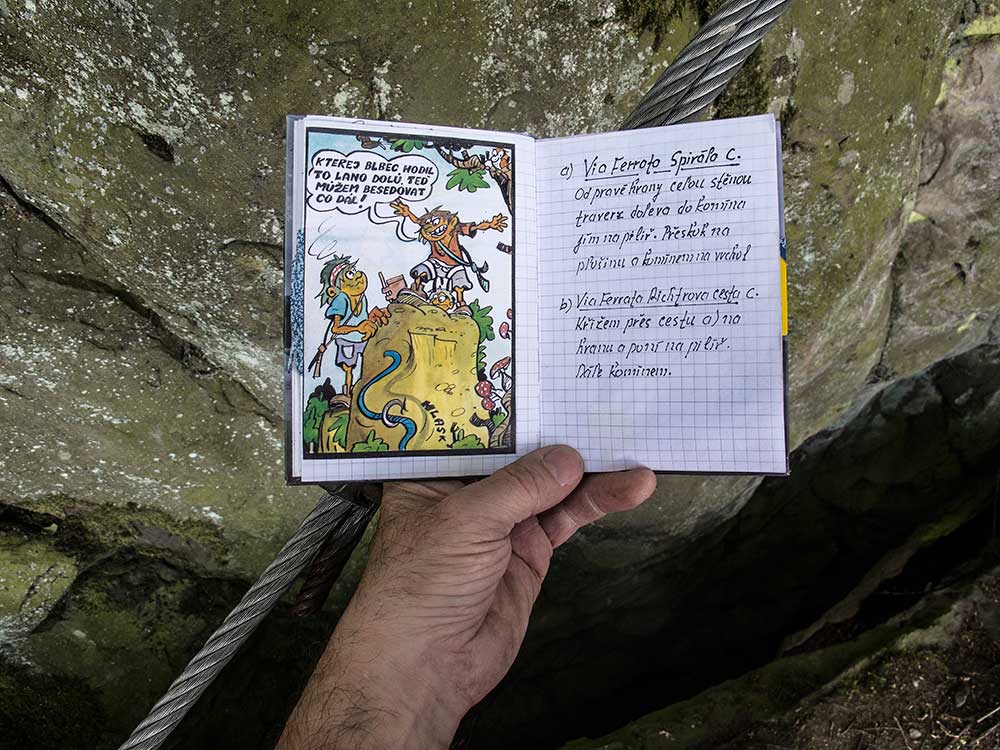 KTEREJ BLBEC HODIL
TO LANO DOLŮ, TEĎ
MŮŽEM BESEDOVAT
CO DÁL!
HLASK
a) Via Ferrata Spirála C.
Od pravé hrany celou stěnou
traverz doleva do komína
jím na pilíř. Přeskok na
plošinu a komínem na vrchol
b) Via Ferrata Richtrova cesta C.
Křížem přes cestu a) na
hranu a po ní na pilíř.
Dále komínem.